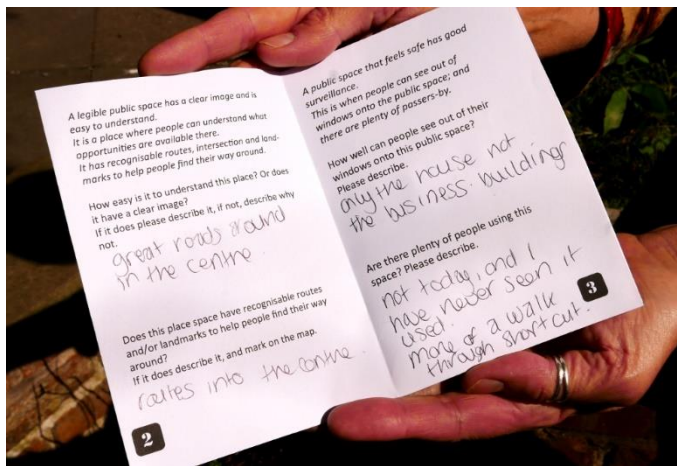 A legible public space has a clear image and is
easy to understand.
It is a place where people can understand what
opportunities are available there.
It has recognisable routes, intersection and land-
marks to help people find their way around.
How easy is it to understand this place? Or does
it have a clear image?
If it does please describe it, if not, describe why
not.
great roads around
in the centre.
Does this place space have recognisable routes
and/or landmarks to help people find their way
around?
If it does describe it, and mark on the map.
routes into the centre.
2
A public space that feels safe has good
surveillance.
This is when people can see out of
windows onto the public space; and
there are plenty of passers-by.
How well can people see out of their
windows onto this public space?
Please describe.
only the house not
the business. buildings
Are there plenty of people using this
space? Please describe.
not today, and I
have never seen it
used.
more of a walk
through short cut.
3